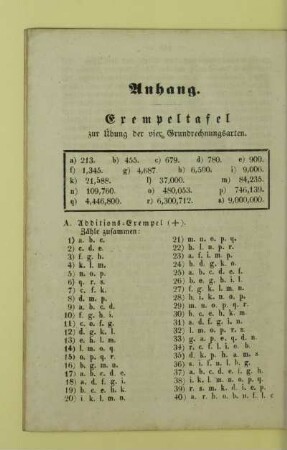 Anhang.
Exempeltafel
zur Übung der vier Grundrechnungsarten.
a) 213. b) 455. c) 679. d) 780. e) 900.
f) 1,345. g) 4,687. h) 6,500. i) 9,006.
k) 21,588. l) 37,000. m) 84,235.
n) 109,760. o) 480,053. p) 746,139.
q) 4,446,800. r) 6,300,712. s) 9,000,000.
A. Additions-Exempel (+).
Zähle zusammen:
1) a. b. c.
2) c. d. e.
3) f. g. h.
4) k. l. m.
5) n. o. p.
6) q. r. s.
7) c. f. k.
8) d. m. p.
9) a. b. c. d.
10) f. g. h. i.
11) c. e. f. g.
12) d. g. k. l.
13) e. h. l. m.
14) l. m. o. q
15) o. p. q. r.
16) h. g. m. n.
17) a. b. c. d. e.
18) a. d. f. g. i.
19) b. c. e. h. k.
20) i. k. l. m. n.
21) m. n. o. p. q.
22) b. f. h. l. p.
23) a. f. i. m. p.
24) b. d. g. k. o.
25) a. b. c. d. e. f.
26) b. e. g. h. i. l.
27) f. g. k. l. m. n.
28) h. i. k. l. m. o.
29) m. n. o. p. q. r.
30) b. c. e. h. k. m.
31) a. d. f. g. i. n.
32) l. m. o. p. r. s.
33) g. a. p. e. q. d.
34) r. c. f. l. i. o. b.
35) d. k. p. h. a. m. s
36) a. i. f. n. l. b. g.
37) a. b. c. d. e. f. g.
38) f. g. h. i. k. l. m.
39) r. a. m. k. d. i. c. p.
40) a. r. b. o. h. e. f. l. c